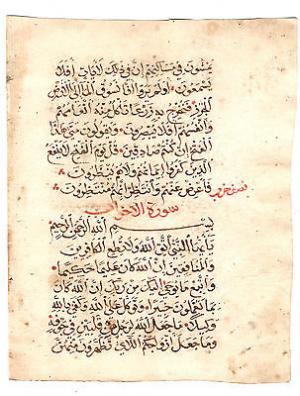 يمشون في مساكنهم ان في ذلك لايات افلا
يسمعون اولم يروا انا نسوق الماء الى الارض
الجرز فنخرج به زرعا تاكل منه انعامهم
وانفسهم افلا يبصرون ويقولون متى هذا
الفتح ان كنتم صادقين قل يوم الفتح لا ينفع
الذين كفروا ايمانهم ولا هم ينظرون
فاعرض عنهم وانتظر انهم منتظرون
سورة الاحزاب
بسم الله الرحمن الرحيم
يا ايها النبي اتق الله ولا تطع الكافرين
والمنافقين ان الله كان عليما حكيما
واتبع ما يوحى اليك من ربك ان الله كان
بما تعملون خبيرا وتوكل على الله وكفى بالله
وكيلا ما جعل الله لرجل من قلبين في جوفه
وما جعل ازواجكم اللائي تظهرون منهن